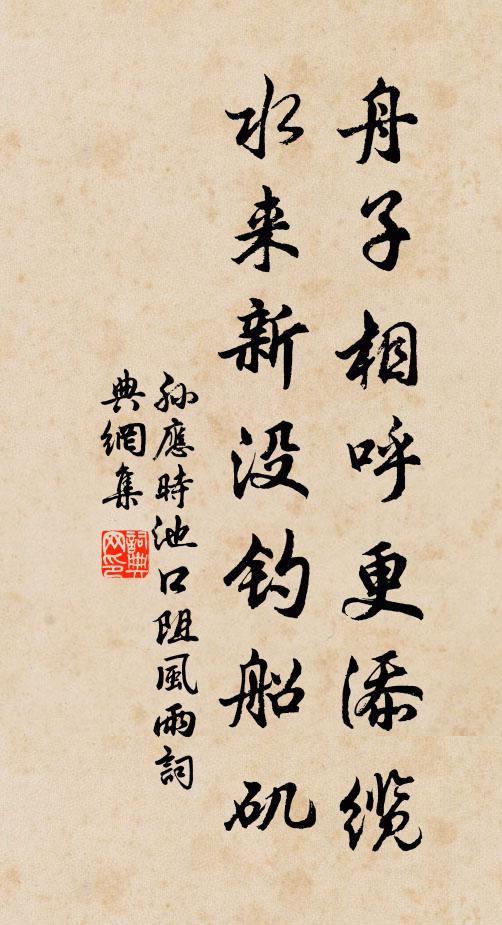 舟子相呼更添缆
水来新没钓船矶
孙應時池口阻風雨詞
典網集
詞典
网印